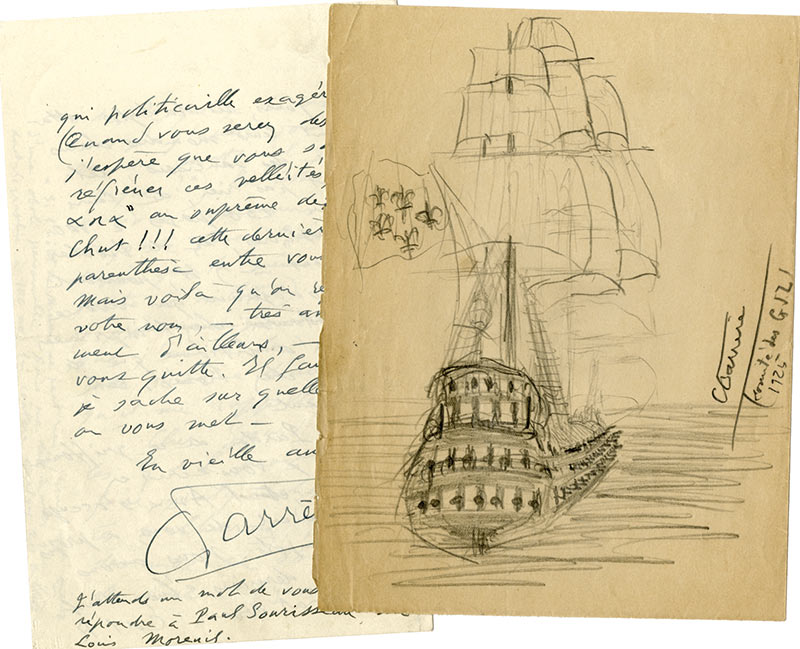 qui politicaille exagér
(Quand vous serez des
j'espère que vous
refréner ces velléités
au suprême
Chut!!! cette dernière
parenthèse entre vou
Mais voilà qu'on
votre nom, – très
ment d'ailleurs, –
vous quitte. Il fau
je sache sur quelle
on vous met –
En vieille
J'attends un mot de vous
répondre à Paul
Louis Moreuil.
Comité des
1925